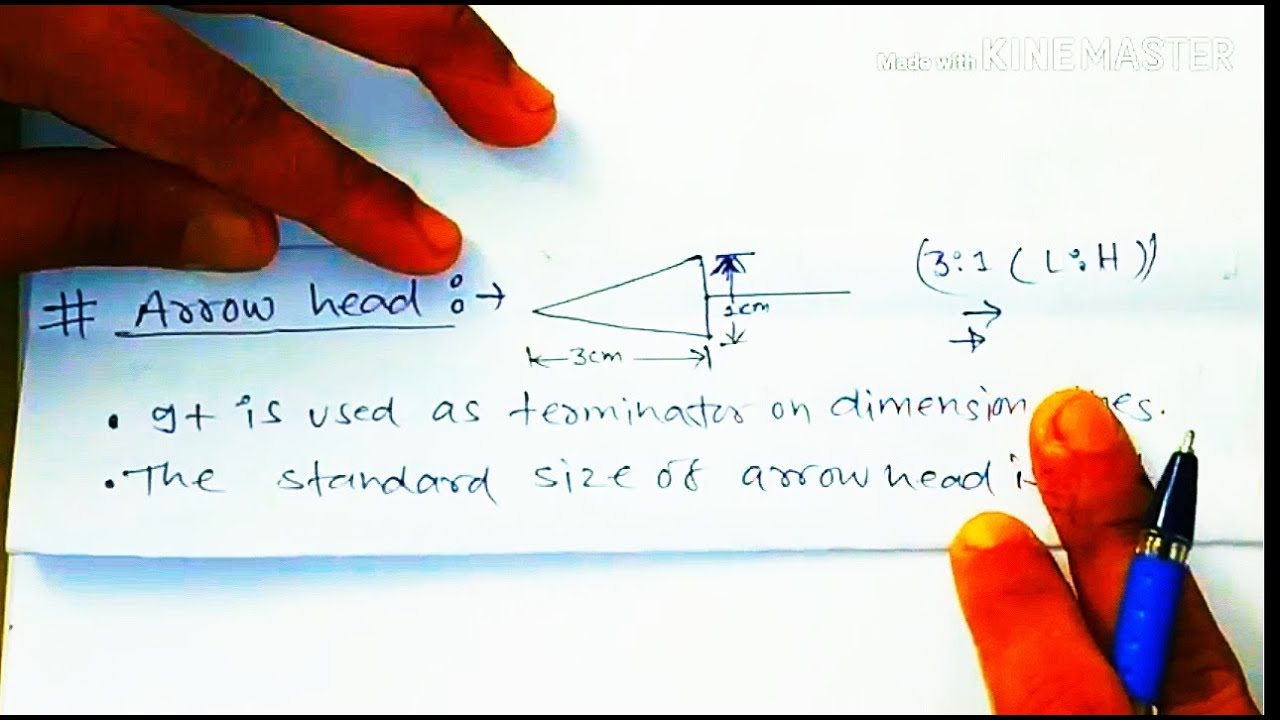 Made with KINEMASTER
(3:1 (L:H))
# Arrow head :→
1cm
3cm
• It is used as terminator on dimension
• The standard size of arrow head is